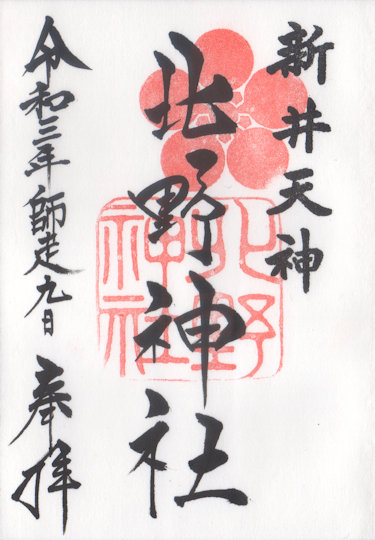 新井天神
北野神社
北野神社
令和三年師走九日
奉拝